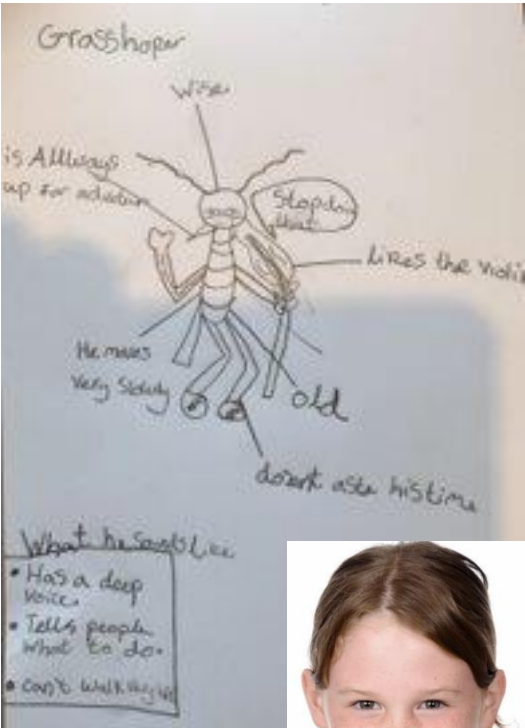 Grasshoper
Wise
is Allways
up for
Stop
that
Likes the violin
He moves
very slowly
old
dosent aste his time
What he
• Has a deep
voice.
• Tells people
what to do.
• can't walk